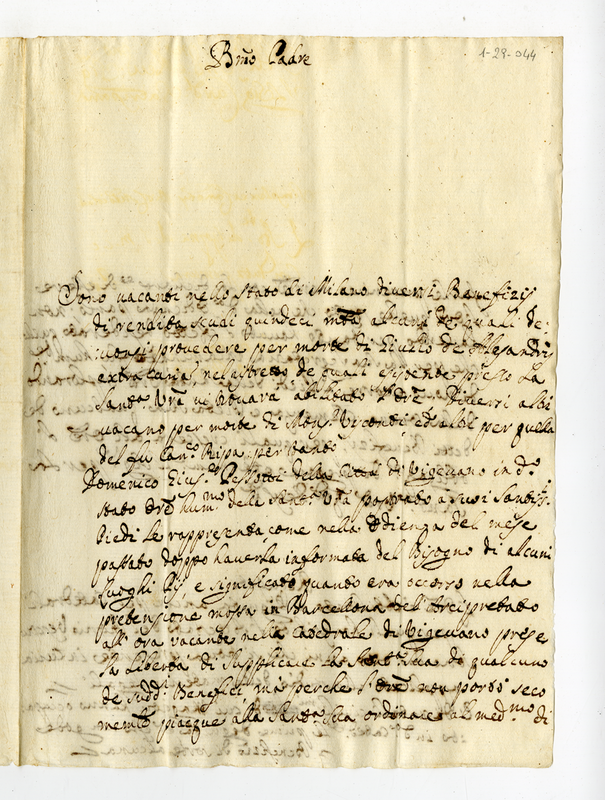 1-29-044
Bmo Padre
Sono vacanti nello stato di Milano diversi Benefizij
di rendita scudi quindeci alcuni de quali de:
vonsi provedere per morte di Giulio de Alesandri
extra curia, nel ristretto de quali esistente presso La
Santà. Vrã vi trovarà abilitato l'Orẽ. Diversi altri
vacano per morte di Monsr. Visconti, ed altri per quella
del fu Canco. Ripa per tanto
Domenico Gius.e Pessotti della Città di Vigevano in do.
stato Orẽ hummo. della Santà. Vrã prostrato a suoi Santiss.
Piedi le rappresenta come nella Udienza del mese
passato doppo haverla informata del Bisogno di alcuni
Luoghi Pij, e significato quando era occorso nella
pretensione mossa in Barcellona dell'Arcipretato
all'ora vacante nella Catedrale di Vigevano prese
la Libertà di supplicare la Santà. Sua di qualcuno
de sudd.i Benefici ma perche l'Orẽ non portò seco
memle piacque alla Santà. Sua ordinare al medmo. di